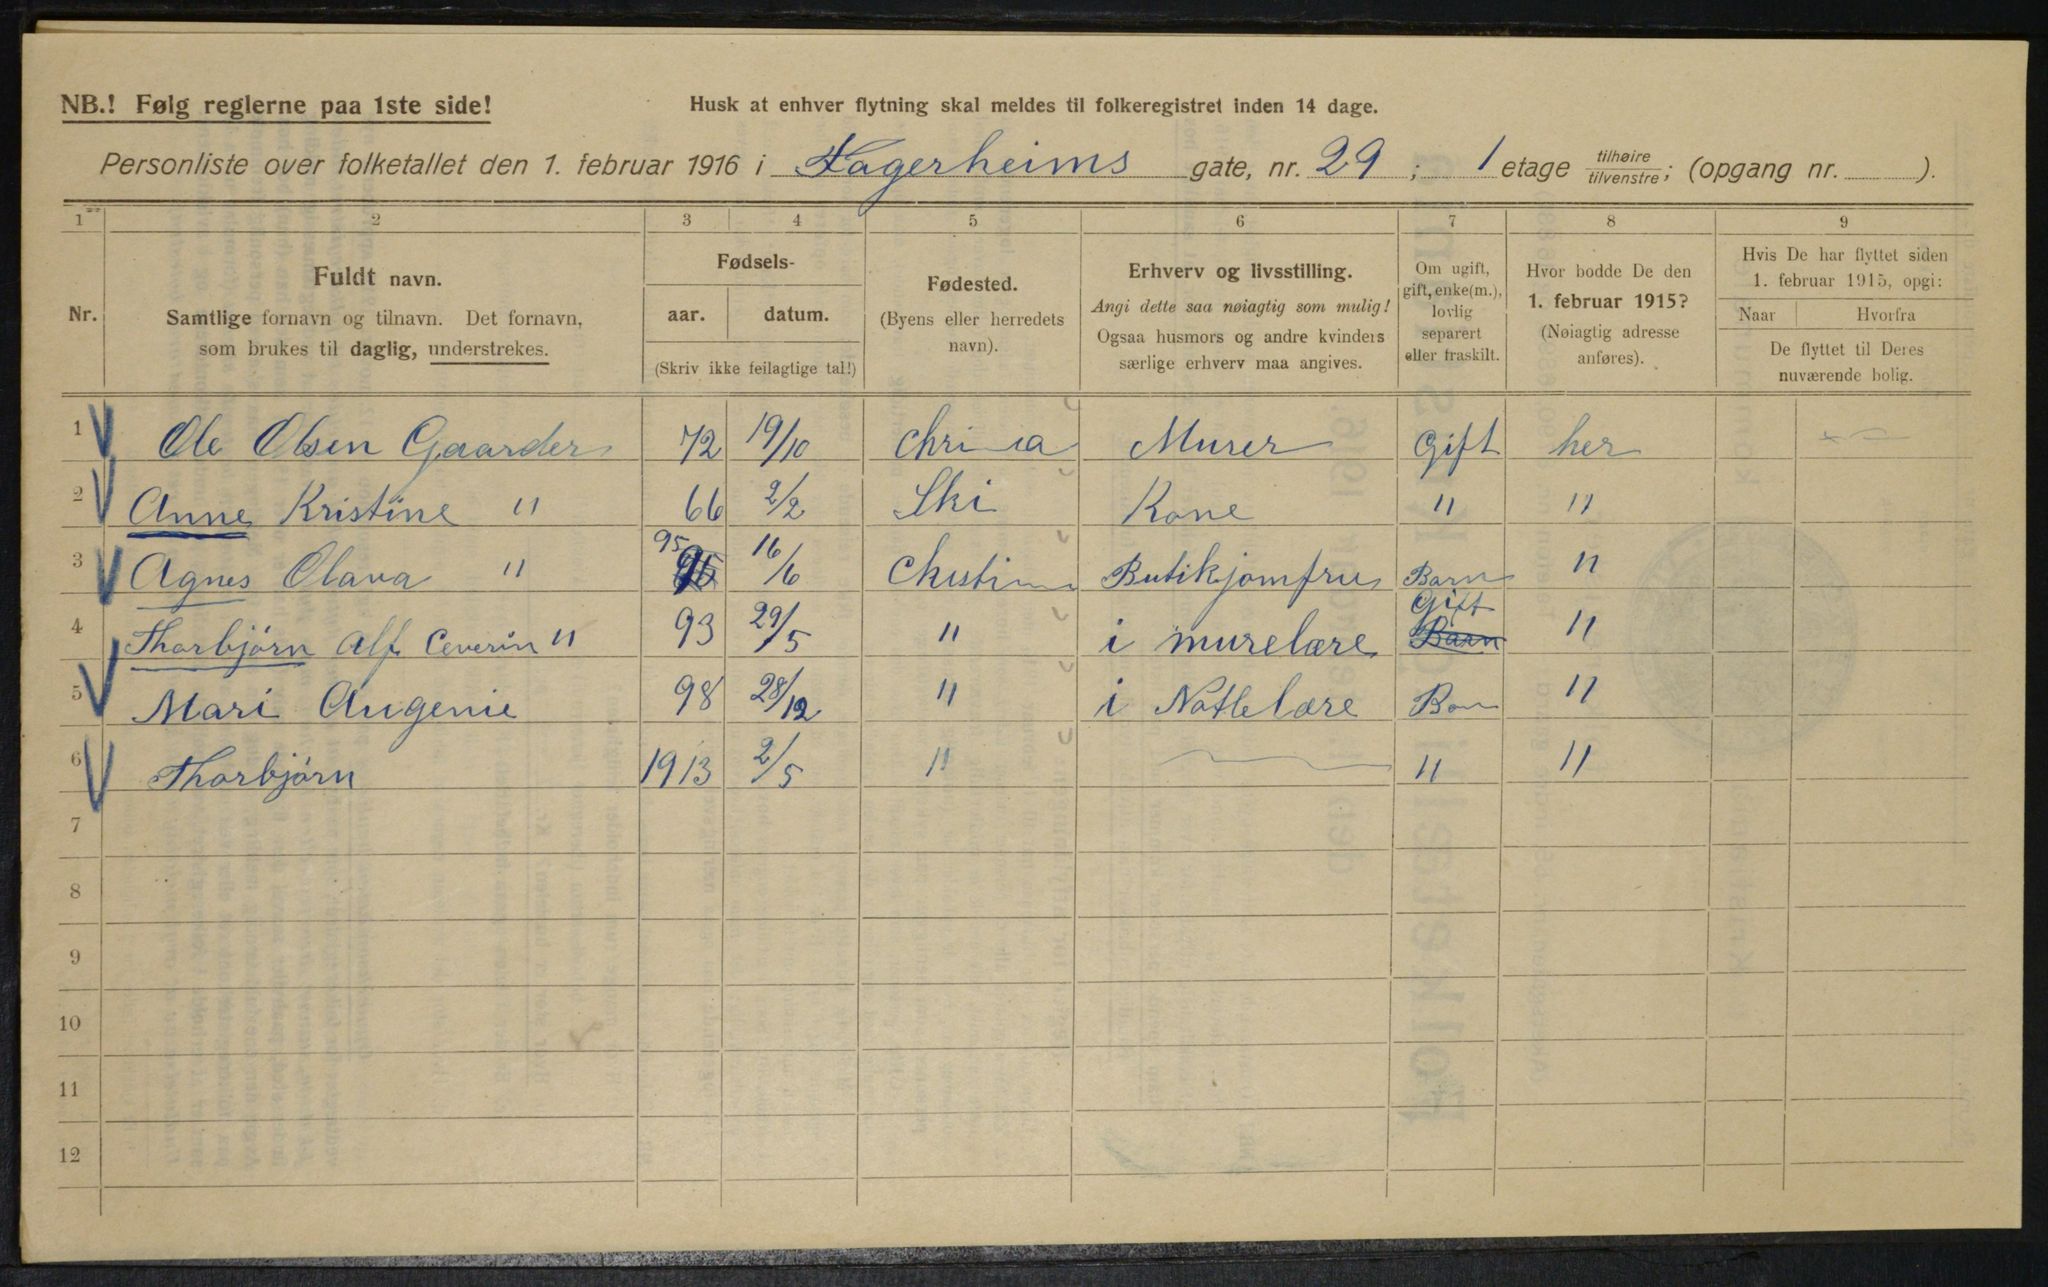 NB.! Følg reglerne paa 1ste side!
Husk at enhver flytning skal meldes til folkeregistret inden 14 dage.
Personliste over folketallet den 1. februar 1916 i Fagerheims gate, nr. 29 ; 1 etage tilhøire tilvenstre ; (opgang nr. ).
1 2 3 4 5 6 7 8 9
Nr.
Fuldt navn.
Samtlige fornavn og tilnavn. Det fornavn,
som brukes til daglig, understrekes.
Fødsels-
aar. datum.
(Skriv ikke feilagtige tal!)
Fødested.
(Byens eller herredets
navn).
Erhverv og livsstilling.
Angi dette saa nøiagtig som mulig!
Ogsaa husmors og andre kvinders
særlige erhverv maa angives.
Om ugift,
gift, enke(m.),
lovlig
separert
eller fraskilt.
Hvor bodde De den
1. februar 1915?
(Nøiagtig adresse
anføres).
Hvis De har flyttet siden
1. februar 1915, opgi:
Naar Hvorfra
De flyttet til Deres
nuværende bolig.
1 Ole Olsen Gaarder 72 19/10 Chri ia Murer Gift her
2 Anne Kristine " 66 2/2 Ski Kone " "
3 Agnes Olava " 95 16/6 Christi Butikjomfru Barn "
4 Thorbjörn Alf Ceverin " 93 29/5 " i murelære Gift Barn "
5 Mari Augenie 98 28/12 " i Natlelære Barn "
6 Thorbjörn 1913 2/5 " " "
7
8
9
10
11
12